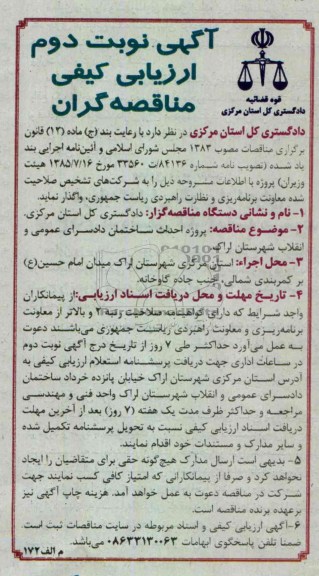 آگهی نوبت دوم
ارزیابی کیفی
مناقصه‌گران
قوه قضائیه
دادگستری کل استان مرکزی
دادگستری کل استان مرکزی در نظر دارد با رعایت بند (ج) ماده (۱۳) قانون
برگزاری مناقصات مصوب ۱۳۸۳ مجلس شورای اسلامی و آئین‌نامه اجرایی بند
یاد شده (تصویب نامه شماره ۸۴۱۳۶/ت ۳۳۵۶۰ مورخ ۱۳۸۵/۷/۱۶ هیئت
وزیران) پروژه با اطلاعات مشروحه ذیل را به شرکت‌های تشخیص صلاحیت
شده معاونت برنامه‌ریزی و نظارت راهبردی ریاست جمهوری، واگذار نماید.
۱- نام و نشانی دستگاه مناقصه‌گزار: دادگستری کل استان مرکزی.
۲- موضوع مناقصه: پروژه احداث ساختمان دادسرای عمومی و
انقلاب شهرستان اراک
۳- محل اجراء: استان مرکزی شهرستان اراک میدان امام حسین(ع)
بر کمربندی شمالی، جنب جاده گاوخانه.
۴- تاریخ مهلت و محل دریافت اسناد ارزیابی: از پیمانکاران
واجد شرایط که دارای گواهینامه صلاحیت رتبه ۲ و بالاتر از معاونت
برنامه‌ریزی و معاونت راهبردی ریاست جمهوری می‌باشند دعوت
به عمل می‌آورد حداکثر طی ۷ روز از تاریخ درج آگهی نوبت دوم
در ساعات اداری جهت دریافت پرسشنامه استعلام ارزیابی کیفی به
آدرس استان مرکزی شهرستان اراک خیابان پانزده خرداد ساختمان
دادسرای عمومی و انقلاب شهرستان اراک واحد فنی و مهندسی
مراجعه و حداکثر ظرف مدت یک هفته (۷ روز) بعد از آخرین مهلت
دریافت اسناد ارزیابی کیفی نسبت به تحویل پرسشنامه تکمیل شده
و سایر مدارک و مستندات خود اقدام نمایند.
۵- بدیهی است ارسال مدارک هیچ‌گونه حقی برای متقاضیان را ایجاد
نخواهد کرد و صرفا از پیمانکارانی که امتیاز کافی کسب نمایند جهت
شرکت در مناقصه دعوت به عمل خواهد آمد. هزینه چاپ آگهی نیز
برعهده برنده مناقصه است.
۶- آگهی ارزیابی کیفی و اسناد مربوطه در سایت مناقصات ثبت است.
ضمنا تلفن پاسخگوی ابهامات ۰۸۶۳۳۱۳۰۰۶۳ می‌باشد.
م الف ۱۷۲